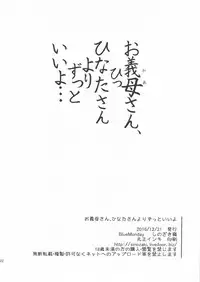 お義母さん、
ひっ
ひなたさん
より
ずっと
いいよ…
お義母さん、ひなたさんよりずっといいよ
2016/12/31 発行
BlueMonday しのざき嶺
18歳未満の方の購入・閲覧を禁じます
無断転載・複製・許可なくネットへのアップロード等を禁じます